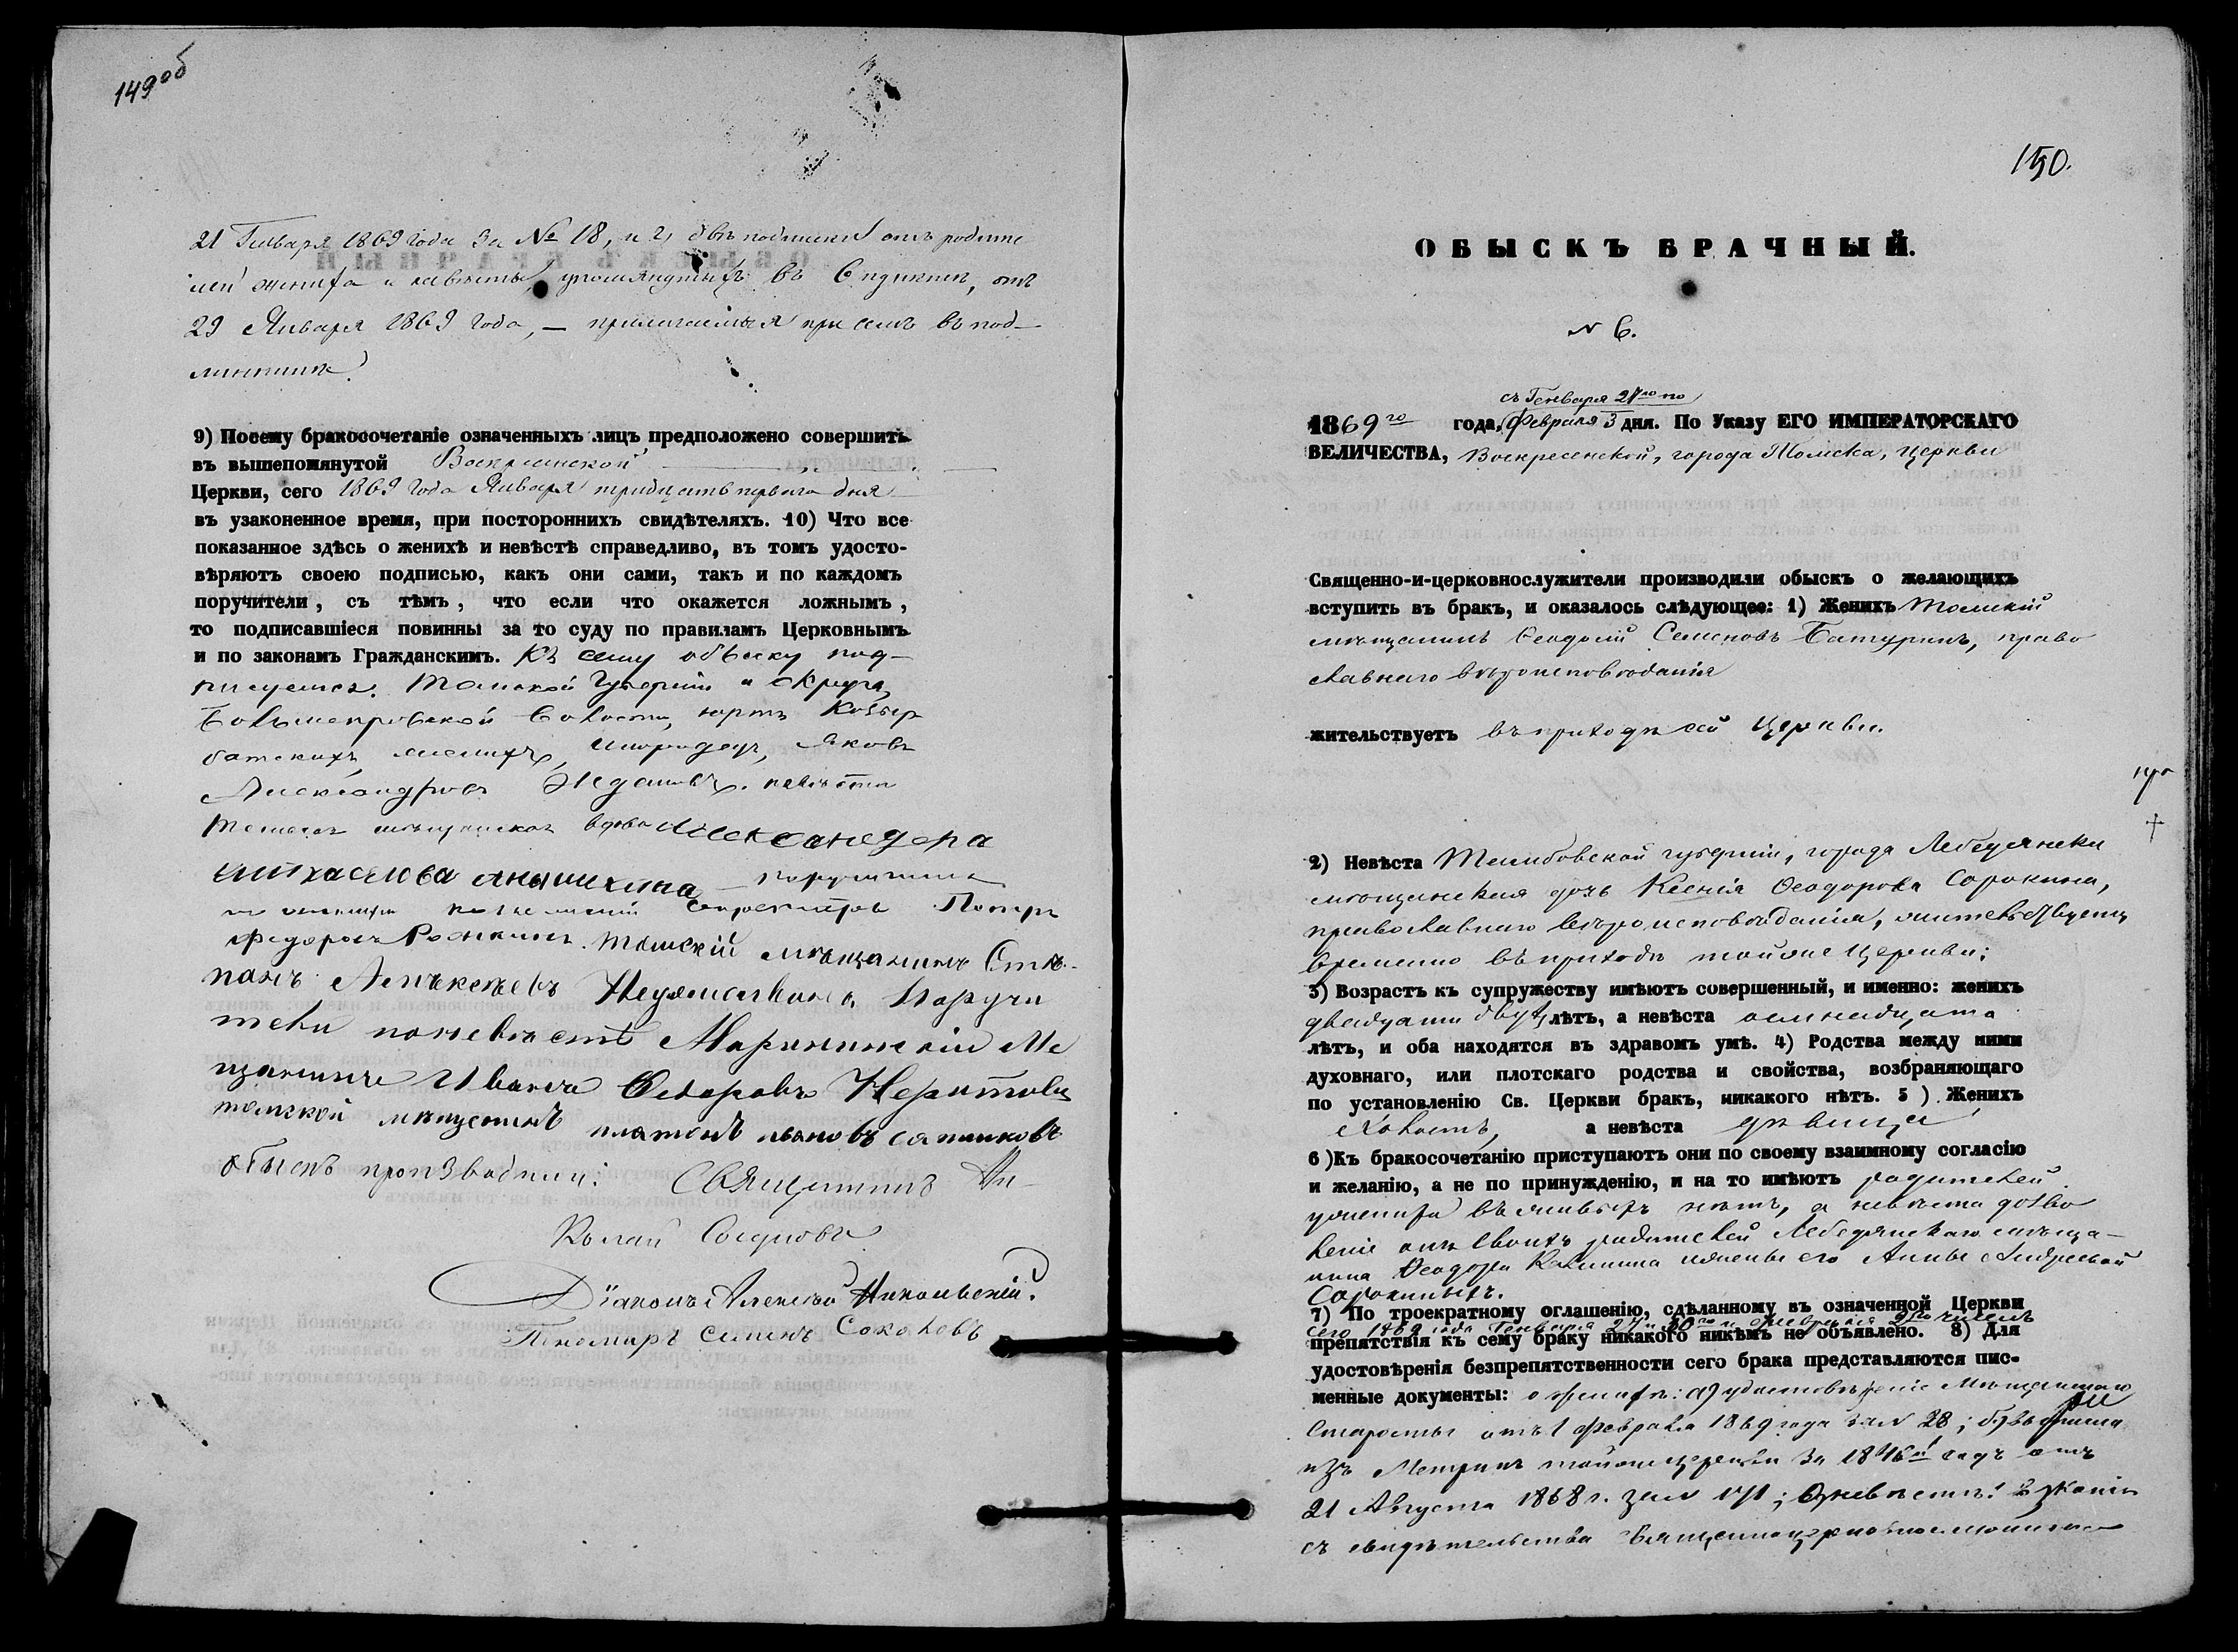 149 об
21 Генваря 1869 года за № 18, и 2, две подписки отъ родите
лей жениха и невѣсты, упомянутыхъ въ 6 пунктѣ, отъ
29 Января 1869 года, — прилагаются при семъ въ под-
линникѣ.
9) Посему бракосочетаніе означенныхъ лицъ предположено совершить
въ вышепомянутой Воскресенской
Церкви, сего 1869 года Января тридцать перваго дня
въ узаконенное время, при постороннихъ свидѣтеляхъ. 10) Что все
показанное здѣсь о женихѣ и невѣстѣ справедливо, въ томъ удосто-
вѣряютъ своею подписью, какъ они сами, такъ и по каждомъ
поручители, съ тѣмъ, что если что окажется ложнымъ,
то подписавшіеся повинны за то суду по правиламъ Церковнымъ
и по законамъ Гражданскимъ. Къ сему обыску под-
писуемся. Томской Губерніи и округа,
волости, юртъ
Яковъ
Александровъ невѣста
Томская мѣщанская вдова Александера
поручители
по женихѣ Петръ
Федоровъ Томскій мѣщанинъ Сте-
панъ Поручи
тели поневѣсте Маріинскій Ме
щанинъ Иванъ Федоровъ
томской мещенинъ платонъ ивановъ сапожковъ
обыскъ производили: Священникъ Ни-
колай Сосуновъ
Діаконъ Алексѣй Никольскій.
Пономарь Семенъ Соколовъ
150.
ОБЫСКЪ БРАЧНЫЙ.
N 6.
съ Генваря 27го по
1869го года, Февраля 3 дня. По Указу ЕГО ИМПЕРАТОРСКАГО
ВЕЛИЧЕСТВА, Воскресенской, города Томска, Церкви
Священно-и-церковнослужители производили обыскъ о желающихъ
вступить въ бракъ, и оказалось слѣдующее: 1) Женихъ Томскій
мѣщанинъ Ѳеодосій Семеновъ Батуринъ, право
славнаго вѣроисповѣданія
жительствуетъ въ приходѣ сей Церкви.
2) Невѣста Тамбовской губерніи, города Лебедянска
мѣщанская дочь Ксенія Ѳеодорова Сорокина,
православнаго вѣроисповѣданія, жительствуетъ
временно въ приходѣ тойже Церкви;
3) Возрастъ къ супружеству имѣютъ совершенный, и именно: женихъ
двадцати двухъ лѣтъ, а невѣста осмнадцати
лѣтъ, и оба находятся въ здравомъ умѣ. 4) Родства между ними
духовнаго, или плотскаго родства и свойства, возбраняющаго
по установленію Св. Церкви бракъ, никакого нѣтъ. 5) Женихъ
холостъ, а невѣста дѣвица
6) Къ бракосочетанію приступаютъ они по своему взаимному согласію
и желанію, а не по принужденію, и на то имѣютъ родителей
у жениха въ живыхъ нѣтъ, а невѣста дозво
леніе отъ своихъ родителей Лебедянскаго мѣща-
нина Ѳеодора Калинина и жены его Анны Андреевой
Сорокиныхъ.
7) По троекратному оглашенію, сдѣланному въ означенной Церкви
сего 1869 года Генваря 27 и 30го и февраля 2го чиселъ
препятствія къ сему браку никакого никѣмъ не объявлено. 8) Для
удостовѣренія безпрепятственности сего брака представляются пис-
менные документы: о женихѣ: а) удостовѣреніе Мѣщанскаго
Старосты отъ 1 февраля 1869 года за N 28; б) выписка
изъ Метрикъ тойже церкви за 1846й годъ отъ
21 Августа 1868 г. за N 171; О невѣстѣ: копія
съ свидѣтельства